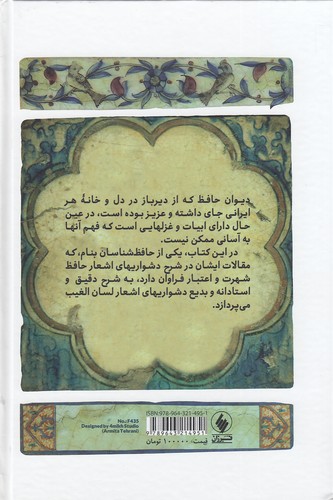 دیوان حافظ که از دیرباز در دل و خانهٔ هر
ایرانی جای داشته و عزیز بوده است، در عین
حال دارای ابیات و غزلهایی است که فهم آنها
به آسانی ممکن نیست.
در این کتاب، یکی از حافظ‌شناسان بنام، که
مقالات ایشان در شرح دشواریهای اشعار حافظ
شهرت و اعتبار فراوان دارد، به شرح دقیق و
استادانه و بدیع دشواریهای اشعار لسان الغیب
می‌پردازد.
No.:F435
Designed by Amikh Studio
(Armita Tehrani)
ISBN:978-964-321-495-1
9789643214951
قیمت: ۱۰۰۰۰۰ تومان